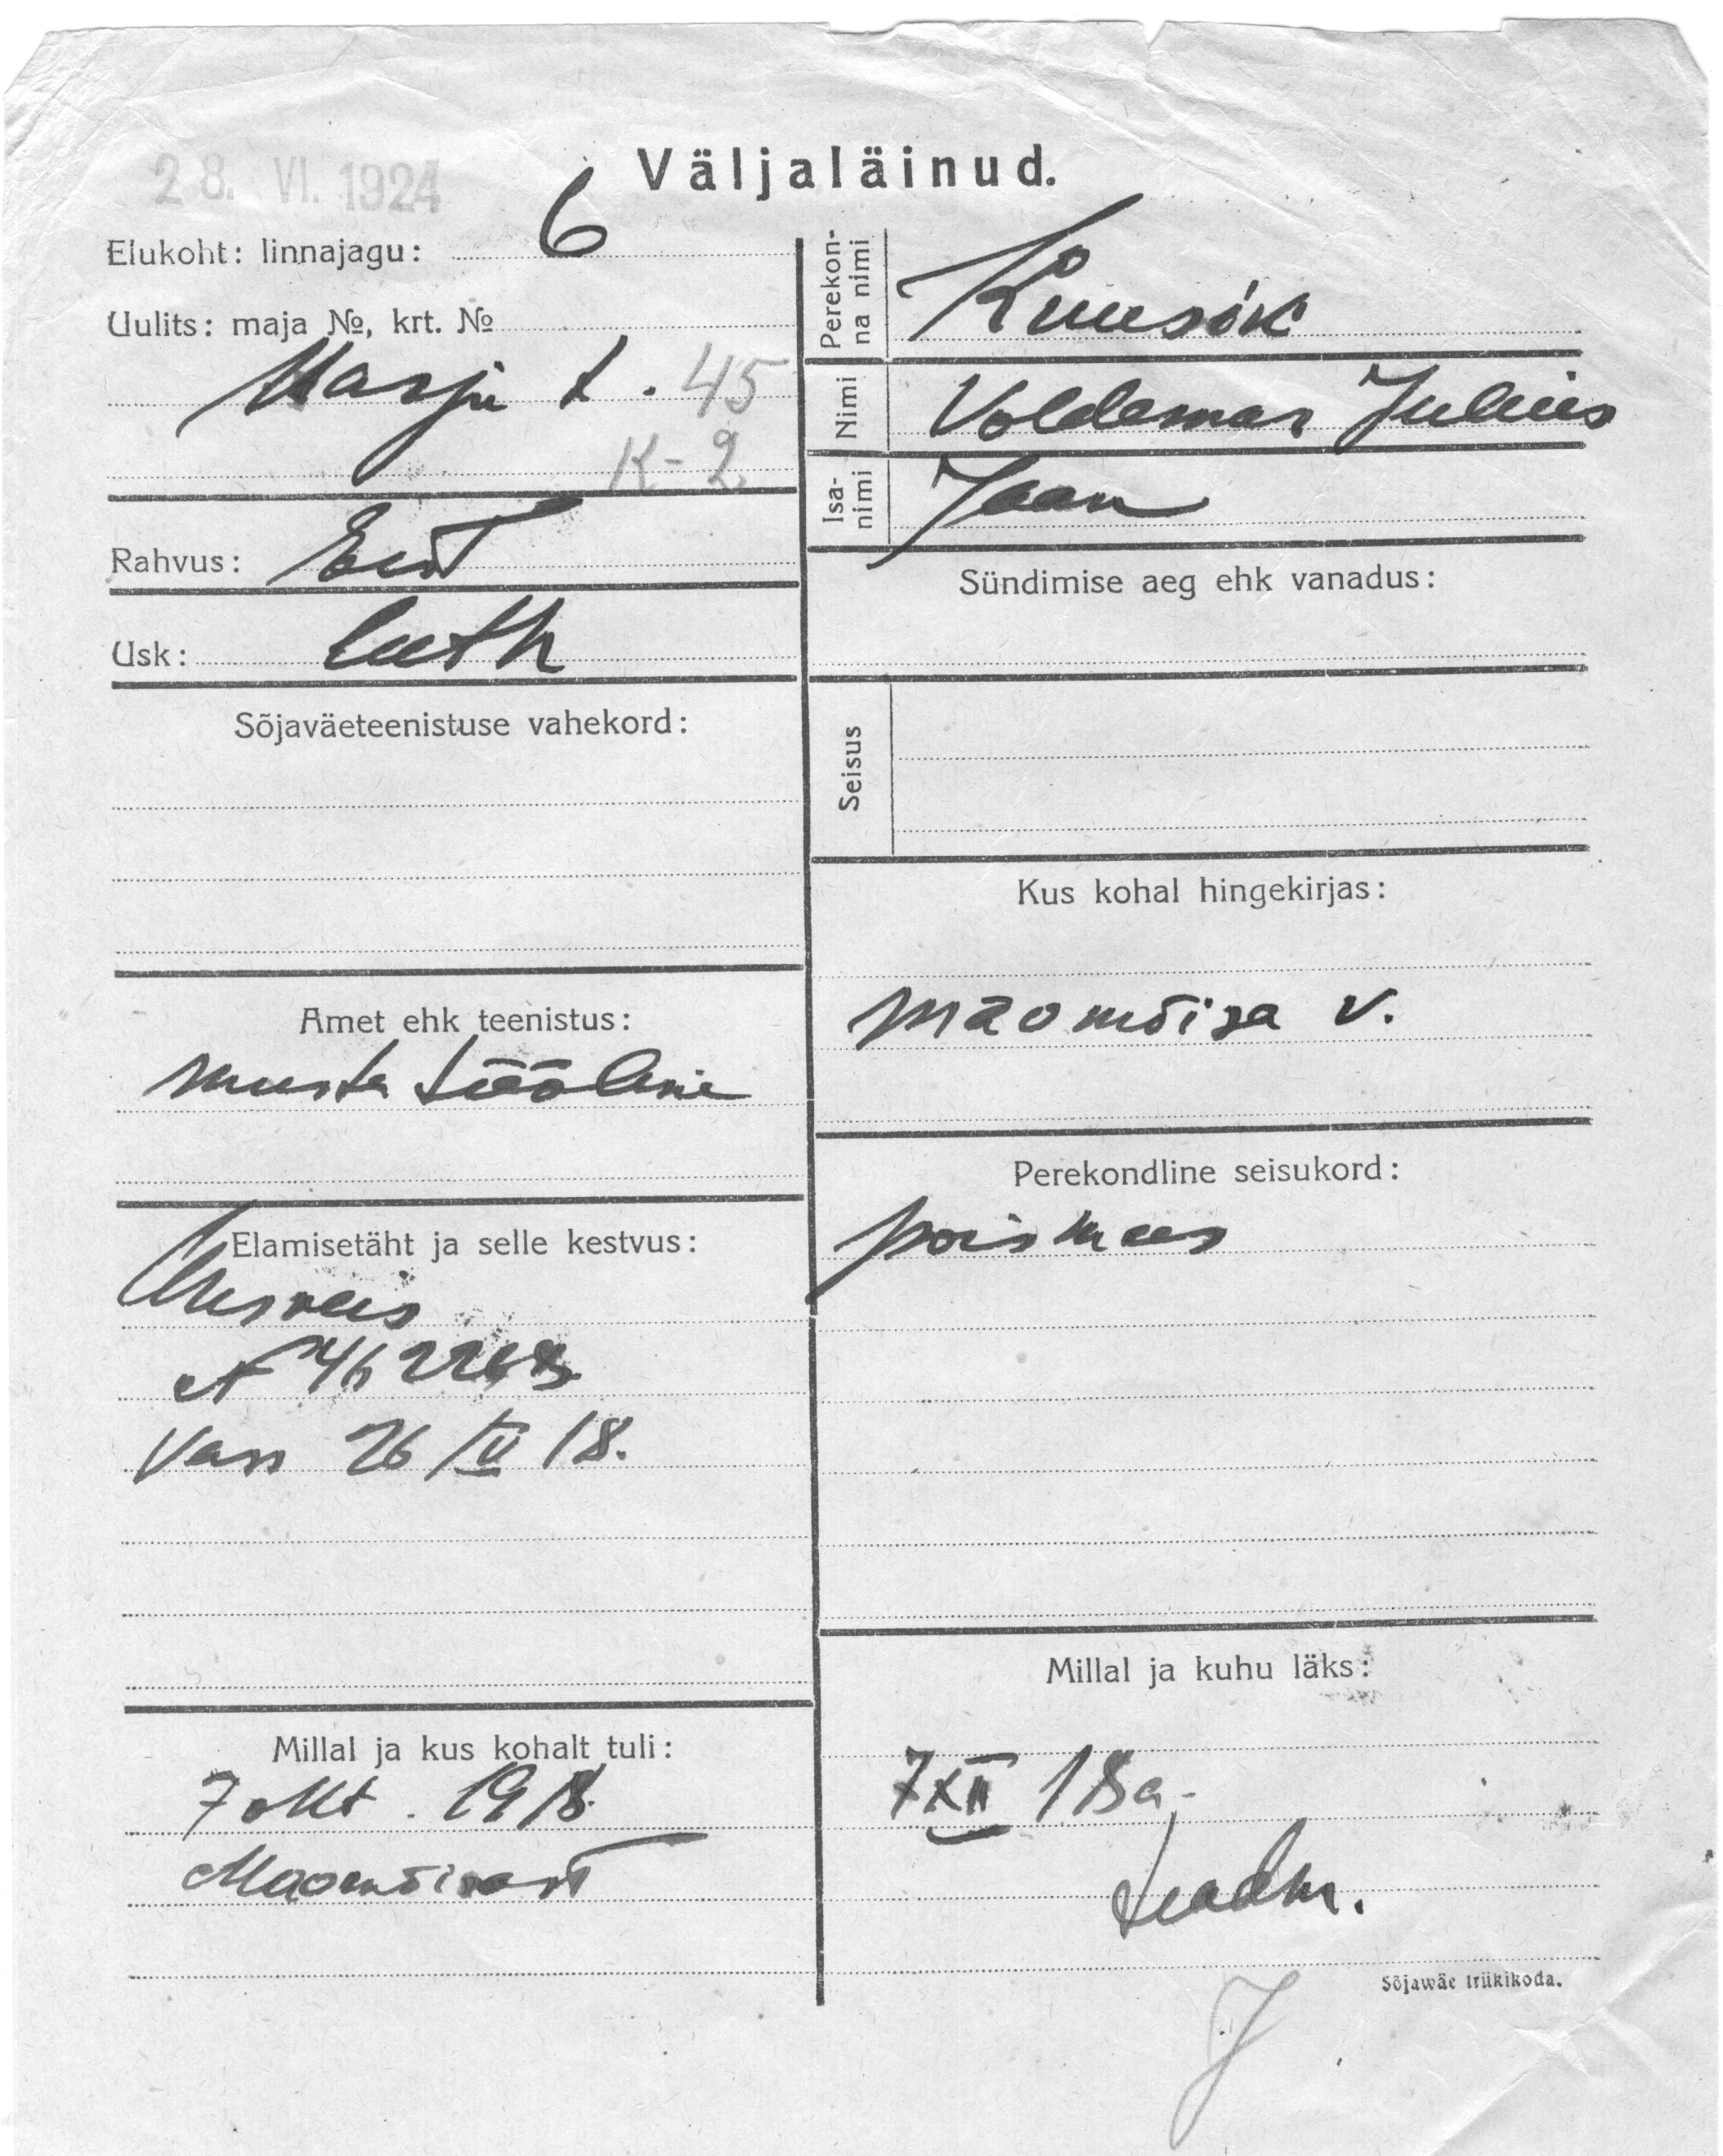 28. VI. 1924
Väljaläinud.
Elukoht: linnajagu: 6
Uulits: maja №, krt. №
Marju t. 45
K-2
Rahvus: Eest
Usk: luth
Sõjaväeteenistuse vahekord:
Amet ehk teenistus:
musta tööline
Elamisetäht ja selle kestvus:
Ausveis
Van 26/V 18.
Millal ja kus kohalt tuli:
7 okt. 1918.
Maomõisast
Perekonna nimi
Kuusik
Nimi
Voldemar Julius
Isanimi
Jaan
Sündimise aeg ehk vanadus:
Seisus
Kus kohal hingekirjas:
Maomõisa v.
Perekondline seisukord:
poismees
Millal ja kuhu läks:
7 XII 18 a.
teadm.
Sõjawäe trükikoda.
J